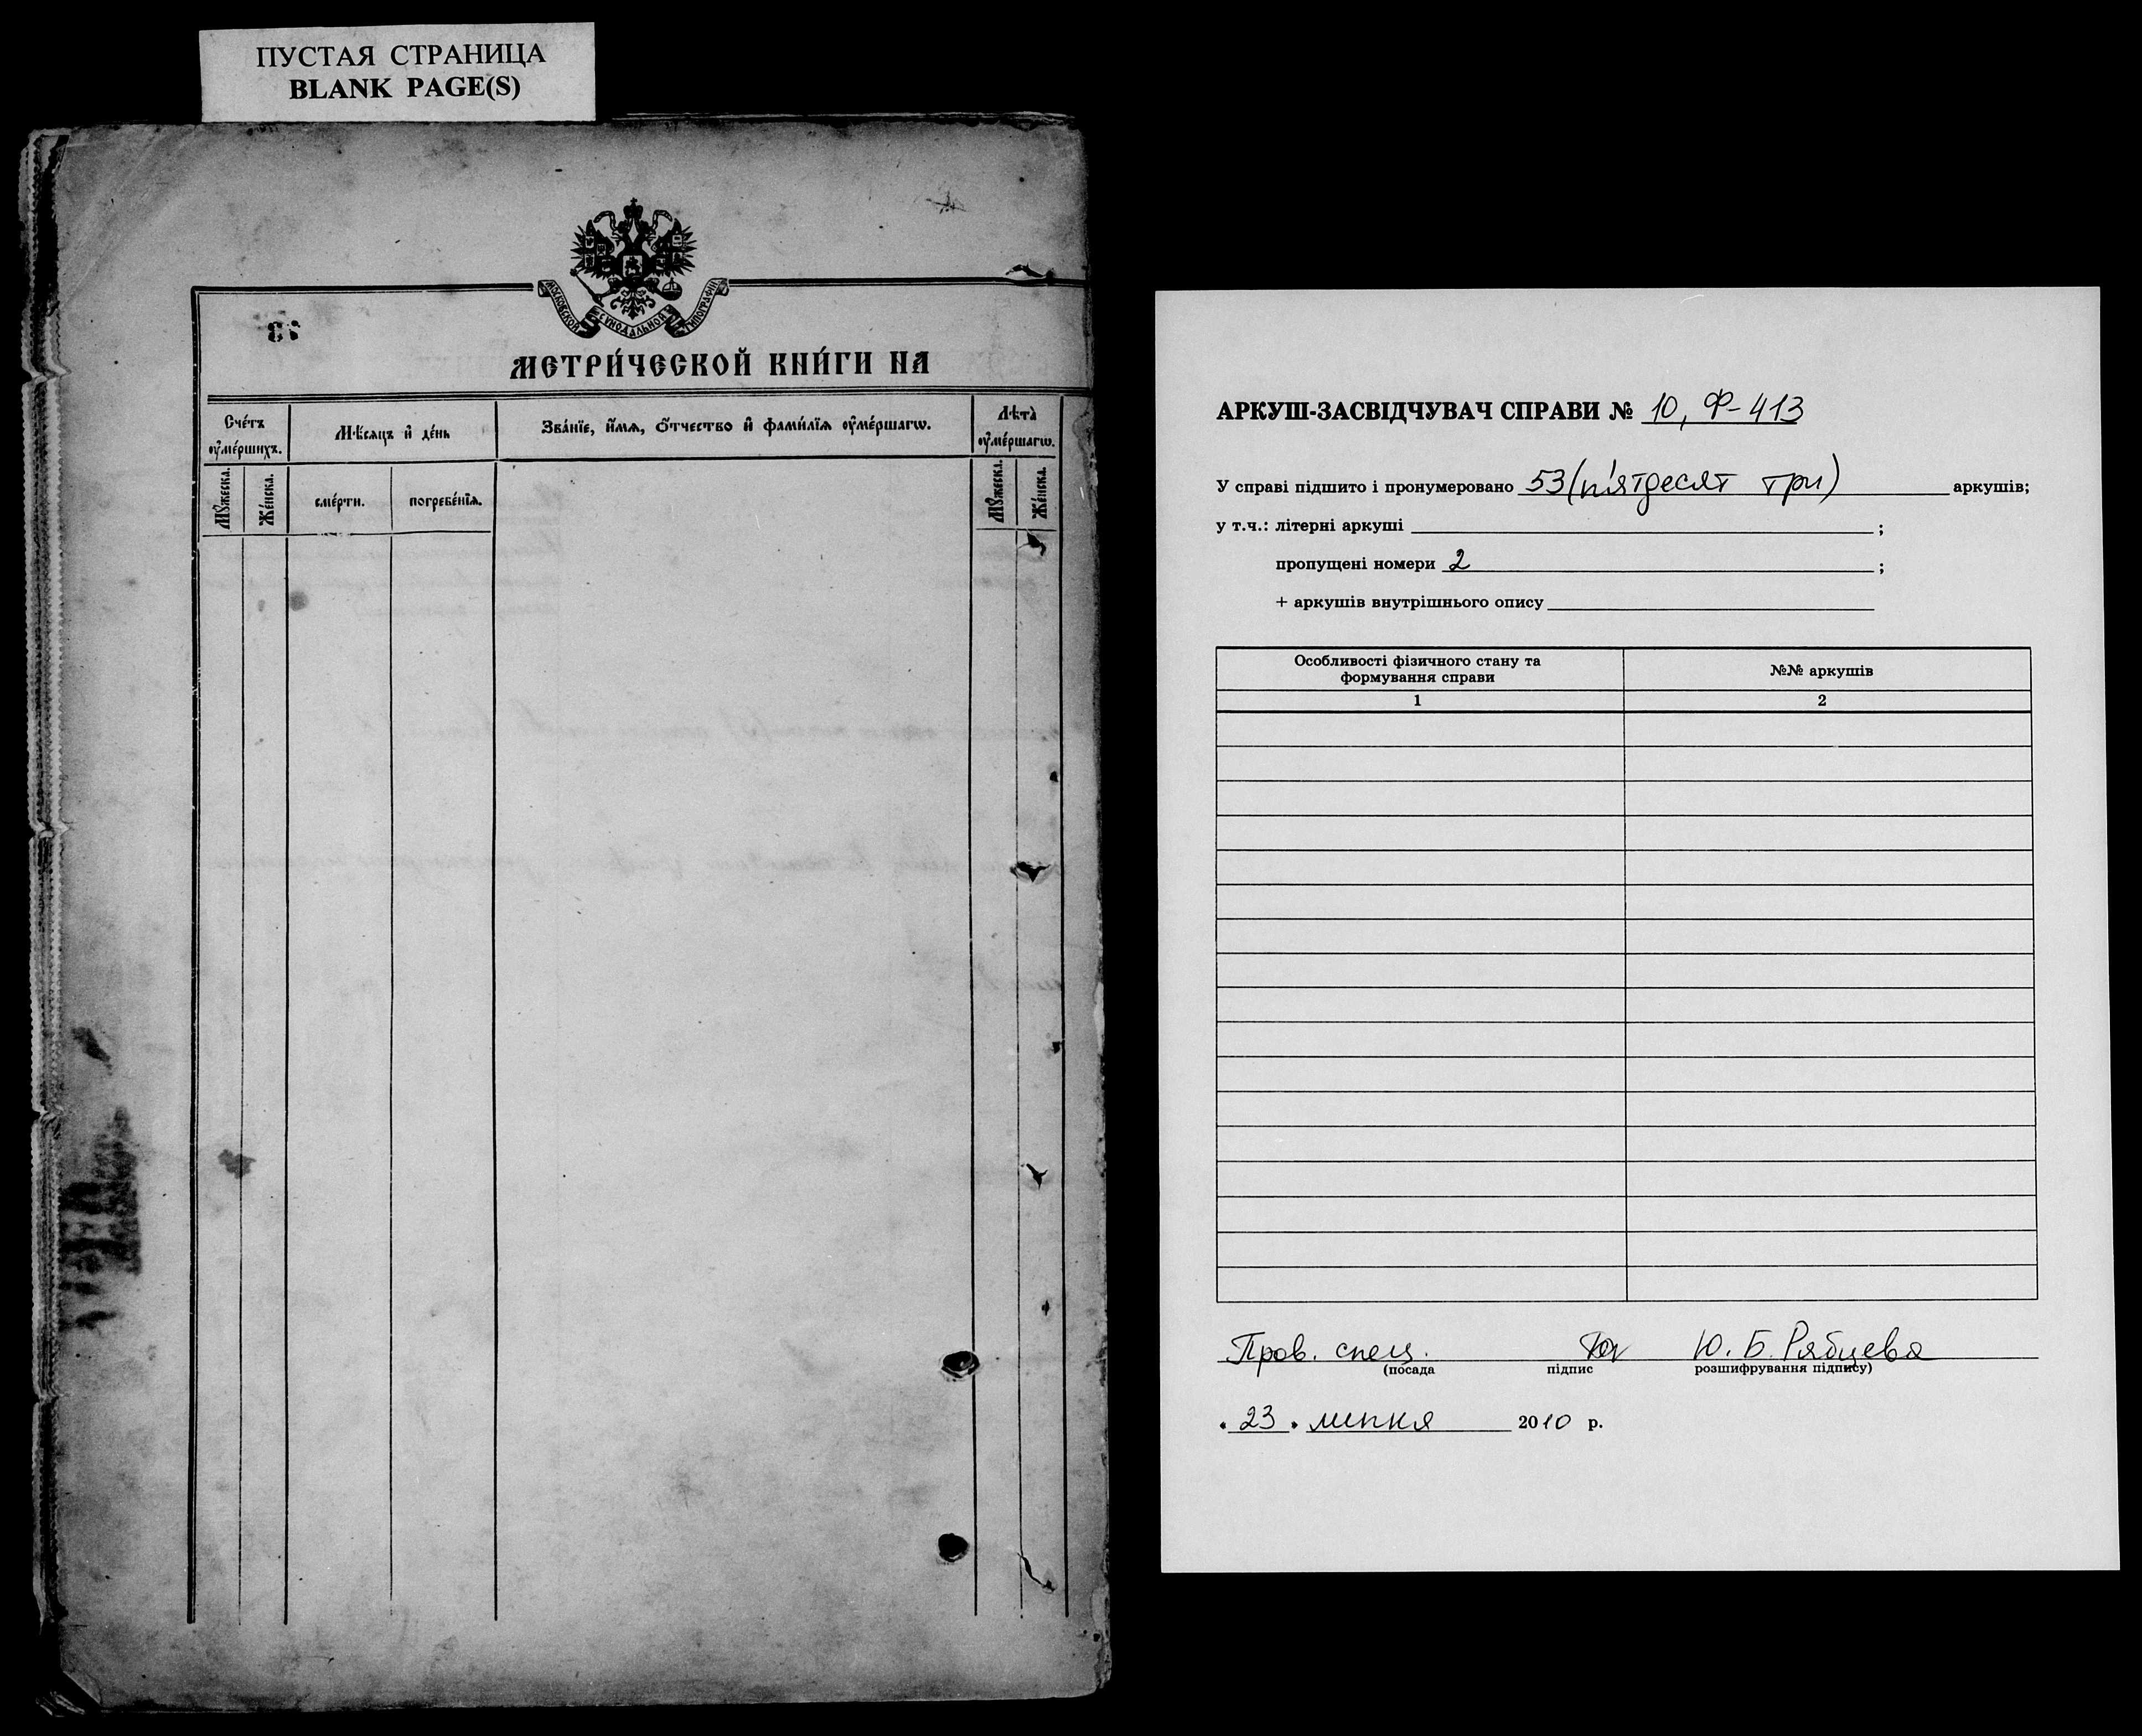 ПУСТАЯ СТРАНИЦА
BLANK PAGE(S)
МОСКОВСКОЙ СУНОДАЛЬНОЙ ТИПОГРАФИИ
МЕТРИ́ЧЕСКОЙ КНИ́ГИ НА
Сче́тъ ᲂу҆ме́ршихъ.
Мѣ́сѧцъ и҆ де́нь
Зва́нїе, и҆́мѧ, ѻ҆́тчество и҆ фами́лїѧ ᲂу҆ме́ршагѡ.
Лѣта̀ ᲂу҆ме́ршагѡ.
Мꙋ́жеска.
Же́нска.
сме́рти.
погребе́нїѧ.
Мꙋ́жеска.
Же́нска.
АРКУШ-ЗАСВІДЧУВАЧ СПРАВИ № 10, Ф-413
У справі підшито і пронумеровано 53 (п'ятдесят три) аркушів;
у т.ч.: літерні аркуші ;
пропущені номери 2 ;
+ аркушів внутрішнього опису
Особливості фізичного стану та
формування справи
№№ аркушів
1 2
Пров. спец. Ю. Б. Рябцева
(посада підпис розшифрування підпису)
" 23 " липня 2010 р.